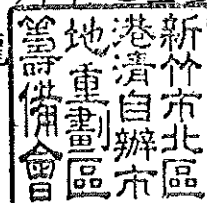 新竹市北區
港清自辦市
地重畫區
籌備會